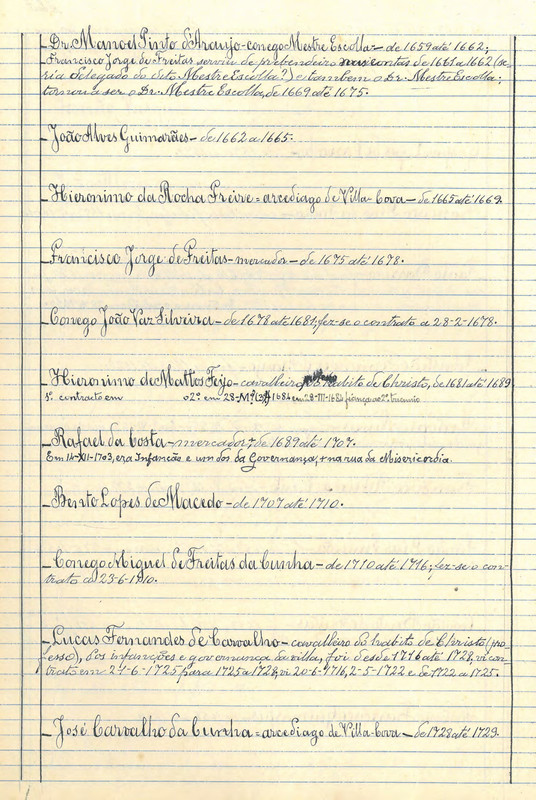 – Dr. Manoel Pinto d'Araujo – conego Mestre Escolla – de 1659 até 1662;
Francisco Jorge de Freitas serviu de prebendeiro nas contas de 1661 a 1662 (se-
ria delegado do dito Mestre Escolla?) e tambem o Dr. Mestre Escolla;
tornou a ser o Dr. Mestre Escolla, de 1669 até 1675.
– João Alves Guimarães – de 1662 a 1665.
– Hieronimo da Rocha Freire = arcediago de Villa-Cova – de 1665 até 1669.
– Francisco Jorge de Freitas – mercador – de 1675 até 1678.
– Conego João Vaz Silveira – de 1678 até 1681; fez-se o contrato a 28-2-1678.
– Hieronimo de Mattos Feijo – cavalleiro habito de Christo, de 1681 até 1689
1º contracto em o 2º em 28-M 1684 em 28-III-1684 fiança ao 2º triennio
– Rafael da Costa – mercador, de 1689 até 1707.
Em 14-XII-1703, era Infanção e um dos da Governança, + na rua da Misericordia.
– Bento Lopes de Macedo – de 1707 até 1710.
– Conego Miguel de Freitas da Cunha – de 1710 até 1716; fez-se o con-
trato a 23-6-1710.
– Lucas Fernandes de Carvalho – cavalleiro do habito de Christo (pro-
fesso), dos infanções e governança da villa, foi desde 1716 até 1728, vi con-
trato em 21-6-1725 para 1725 a 1728, vi 20-6-1716, 2-5-1722 e de 1722 a 1725.
– José Carvalho da Cunha = arcediago de Villa-Cova – de 1728 até 1729.